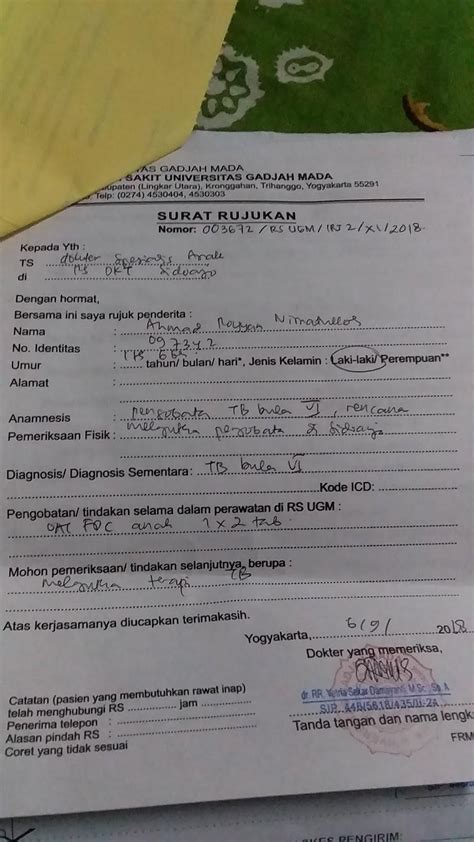 TAS GADJAH MADA
SAKIT UNIVERSITAS GADJAH MADA
upaten (Lingkar Utara), Kronggahan, Trihanggo, Yogyakarta 55291
Telp: (0274) 4530404, 4530303
SURAT RUJUKAN
Nomor: 003672/RS UGM/IRJ 2/XI/2018
Kepada Yth :
TS dokter Spesialis Anak
di RS DKT Sidoarjo
Dengan hormat,
Bersama ini saya rujuk penderita :
Nama : Ahmad Rayyan
No. Identitas : 097342
Umur : tahun/ bulan/ hari*, Jenis Kelamin : Laki-laki/ Perempuan**
Alamat :
Anamnesis : pengobata TB bula VI, rencana
Pemeriksaan Fisik : pengobata di Sidoarjo
Diagnosis/ Diagnosis Sementara: TB bula VI
Kode ICD:
Pengobatan/ tindakan selama dalam perawatan di RS UGM :
OAT FDC anak 1x2 tab
Mohon pemeriksaan/ tindakan selanjutnya, berupa :
terapi TB
Atas kerjasamanya diucapkan terimakasih.
Yogyakarta, 6/9/ 2018
Dokter yang memeriksa,
Catatan (pasien yang membutuhkan rawat inap)
telah menghubungi RS jam
Penerima telepon :
Alasan pindah RS :
Coret yang tidak sesuai
Tanda tangan dan nama lengk
FRM
KES PENGIRIM: